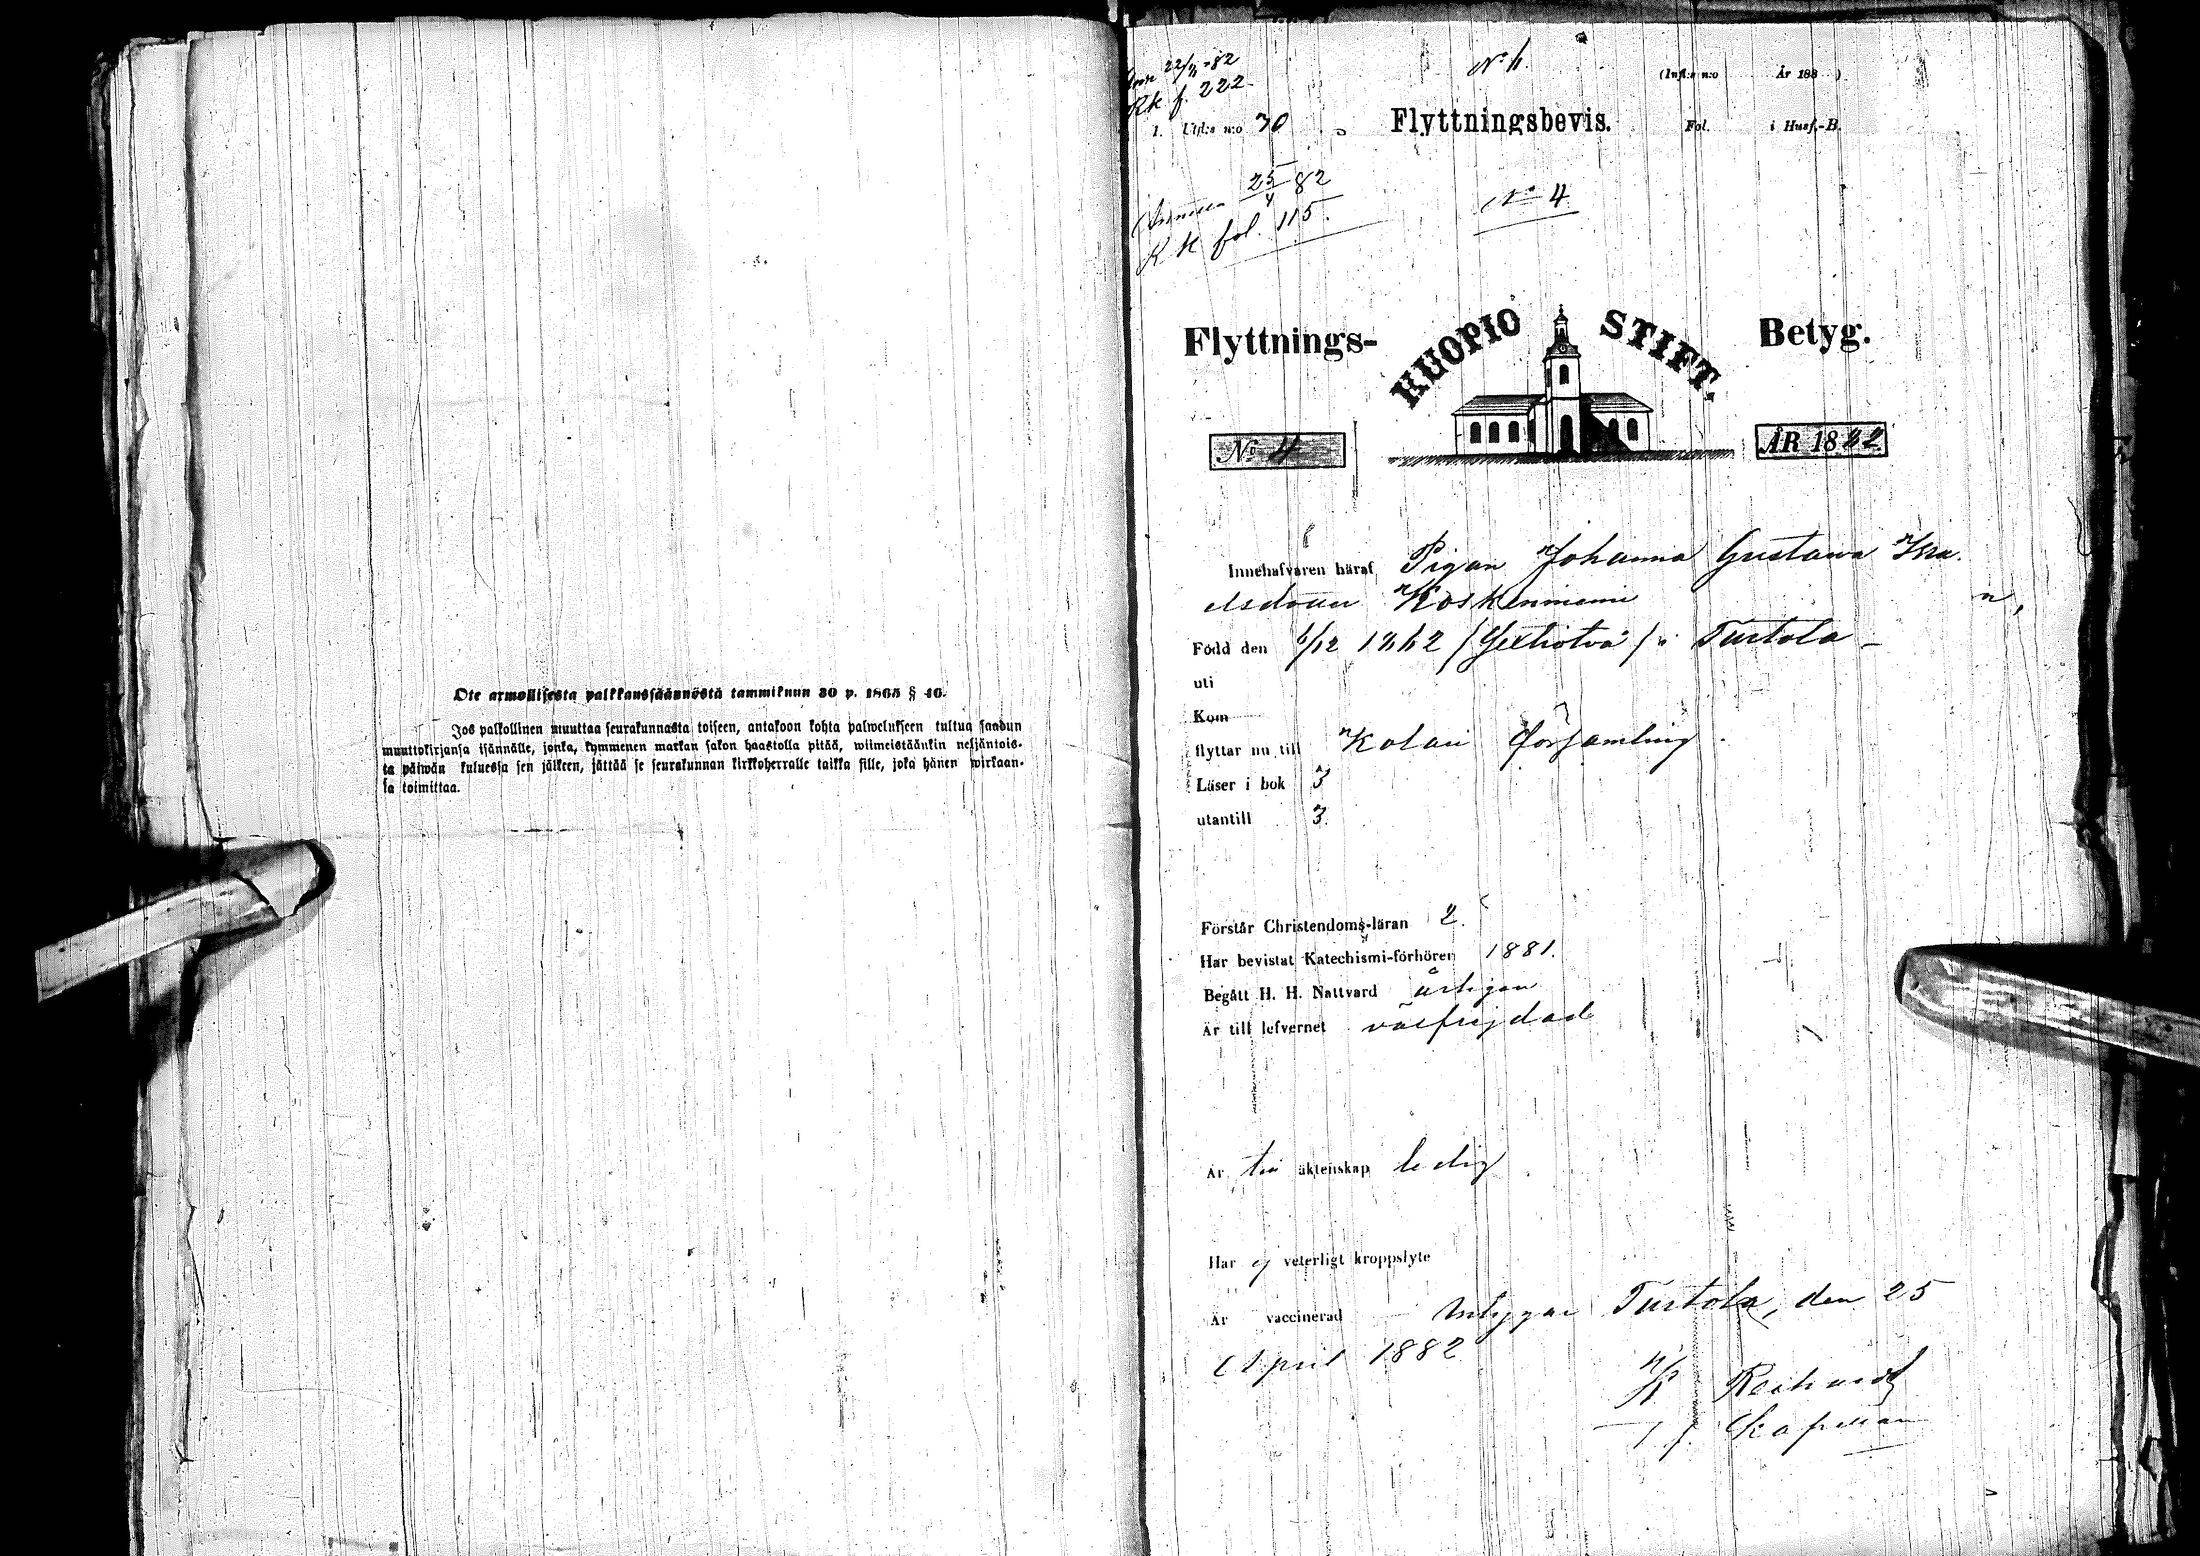 Ote armollisesta palkkaussäännöstä tammikuun 30 p. 1865 § 46.
Jos palkollinen muuttaa seurakunnasta toiseen, antakoon kohta palwelukseen tultua saadun
muuttokirjansa isännälle, jonka, kymmenen markan sakon haastolla pitää, wiimeistäänkin neljäntois-
ta päiwän kuluessa sen jälkeen, jättää se seurakunnan kirkkoherralle taikka sille, joka hänen wirkaan-
sa toimittaa.
22/4 -82
Rk f. 222
(Infl:s n:o År 188 )
1. Utfl:s n:o 30
Flyttningsbevis.
Fol. i Husf.-B.
25/4 82
Rk fol. 115.
No 4
Flyttnings- HUOPIO STIFT. Betyg.
No 4
ÅR 1882
Innehafvaren häraf Pigan Johanna Gustawa Isra
elsdotter Koskenniemi
Född den 6/12 1862 (Sextiotvå) i Turtola
uti
Kom
flyttar nu till Kolari församling.
Läser i bok 3
utantill 3.
Förstår Christendoms-läran 2.
Har bevistat Katechismi-förhören 1881.
Begått H. H. Nattvard årligen
Är till lefvernet välfrejdad
Är till äktenskap ledig
Har ej veterligt kroppslyte
Är vaccinerad Intygar Turtola, den 25
April 1882
Kapellan